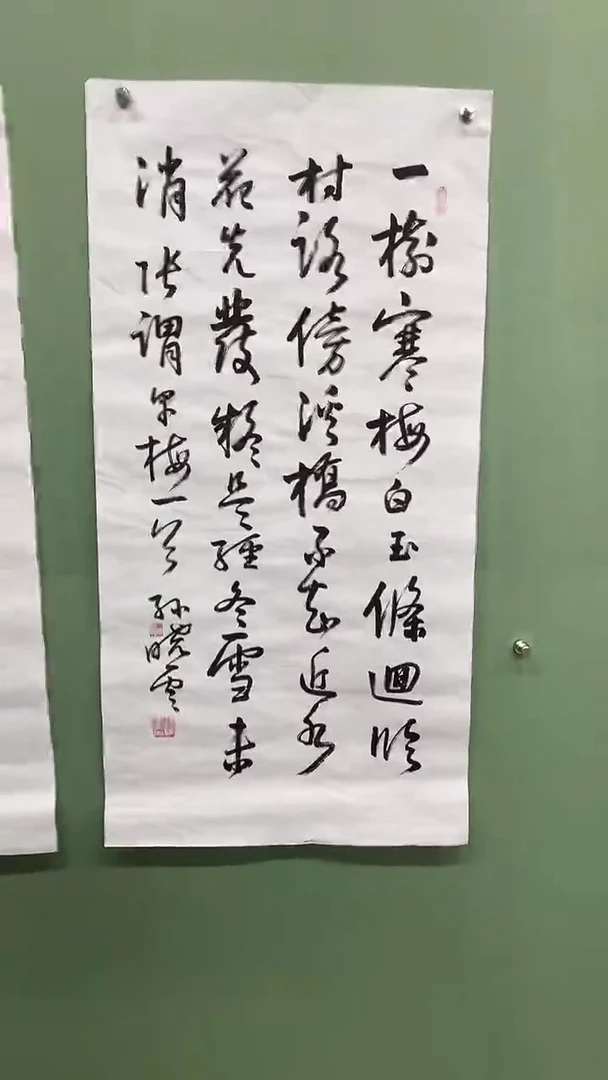 一樹寒梅白玉條迴臨
村路傍溪橋不知近水
花先發疑是經冬雪未
消 張謂早梅一首 孫曉雲